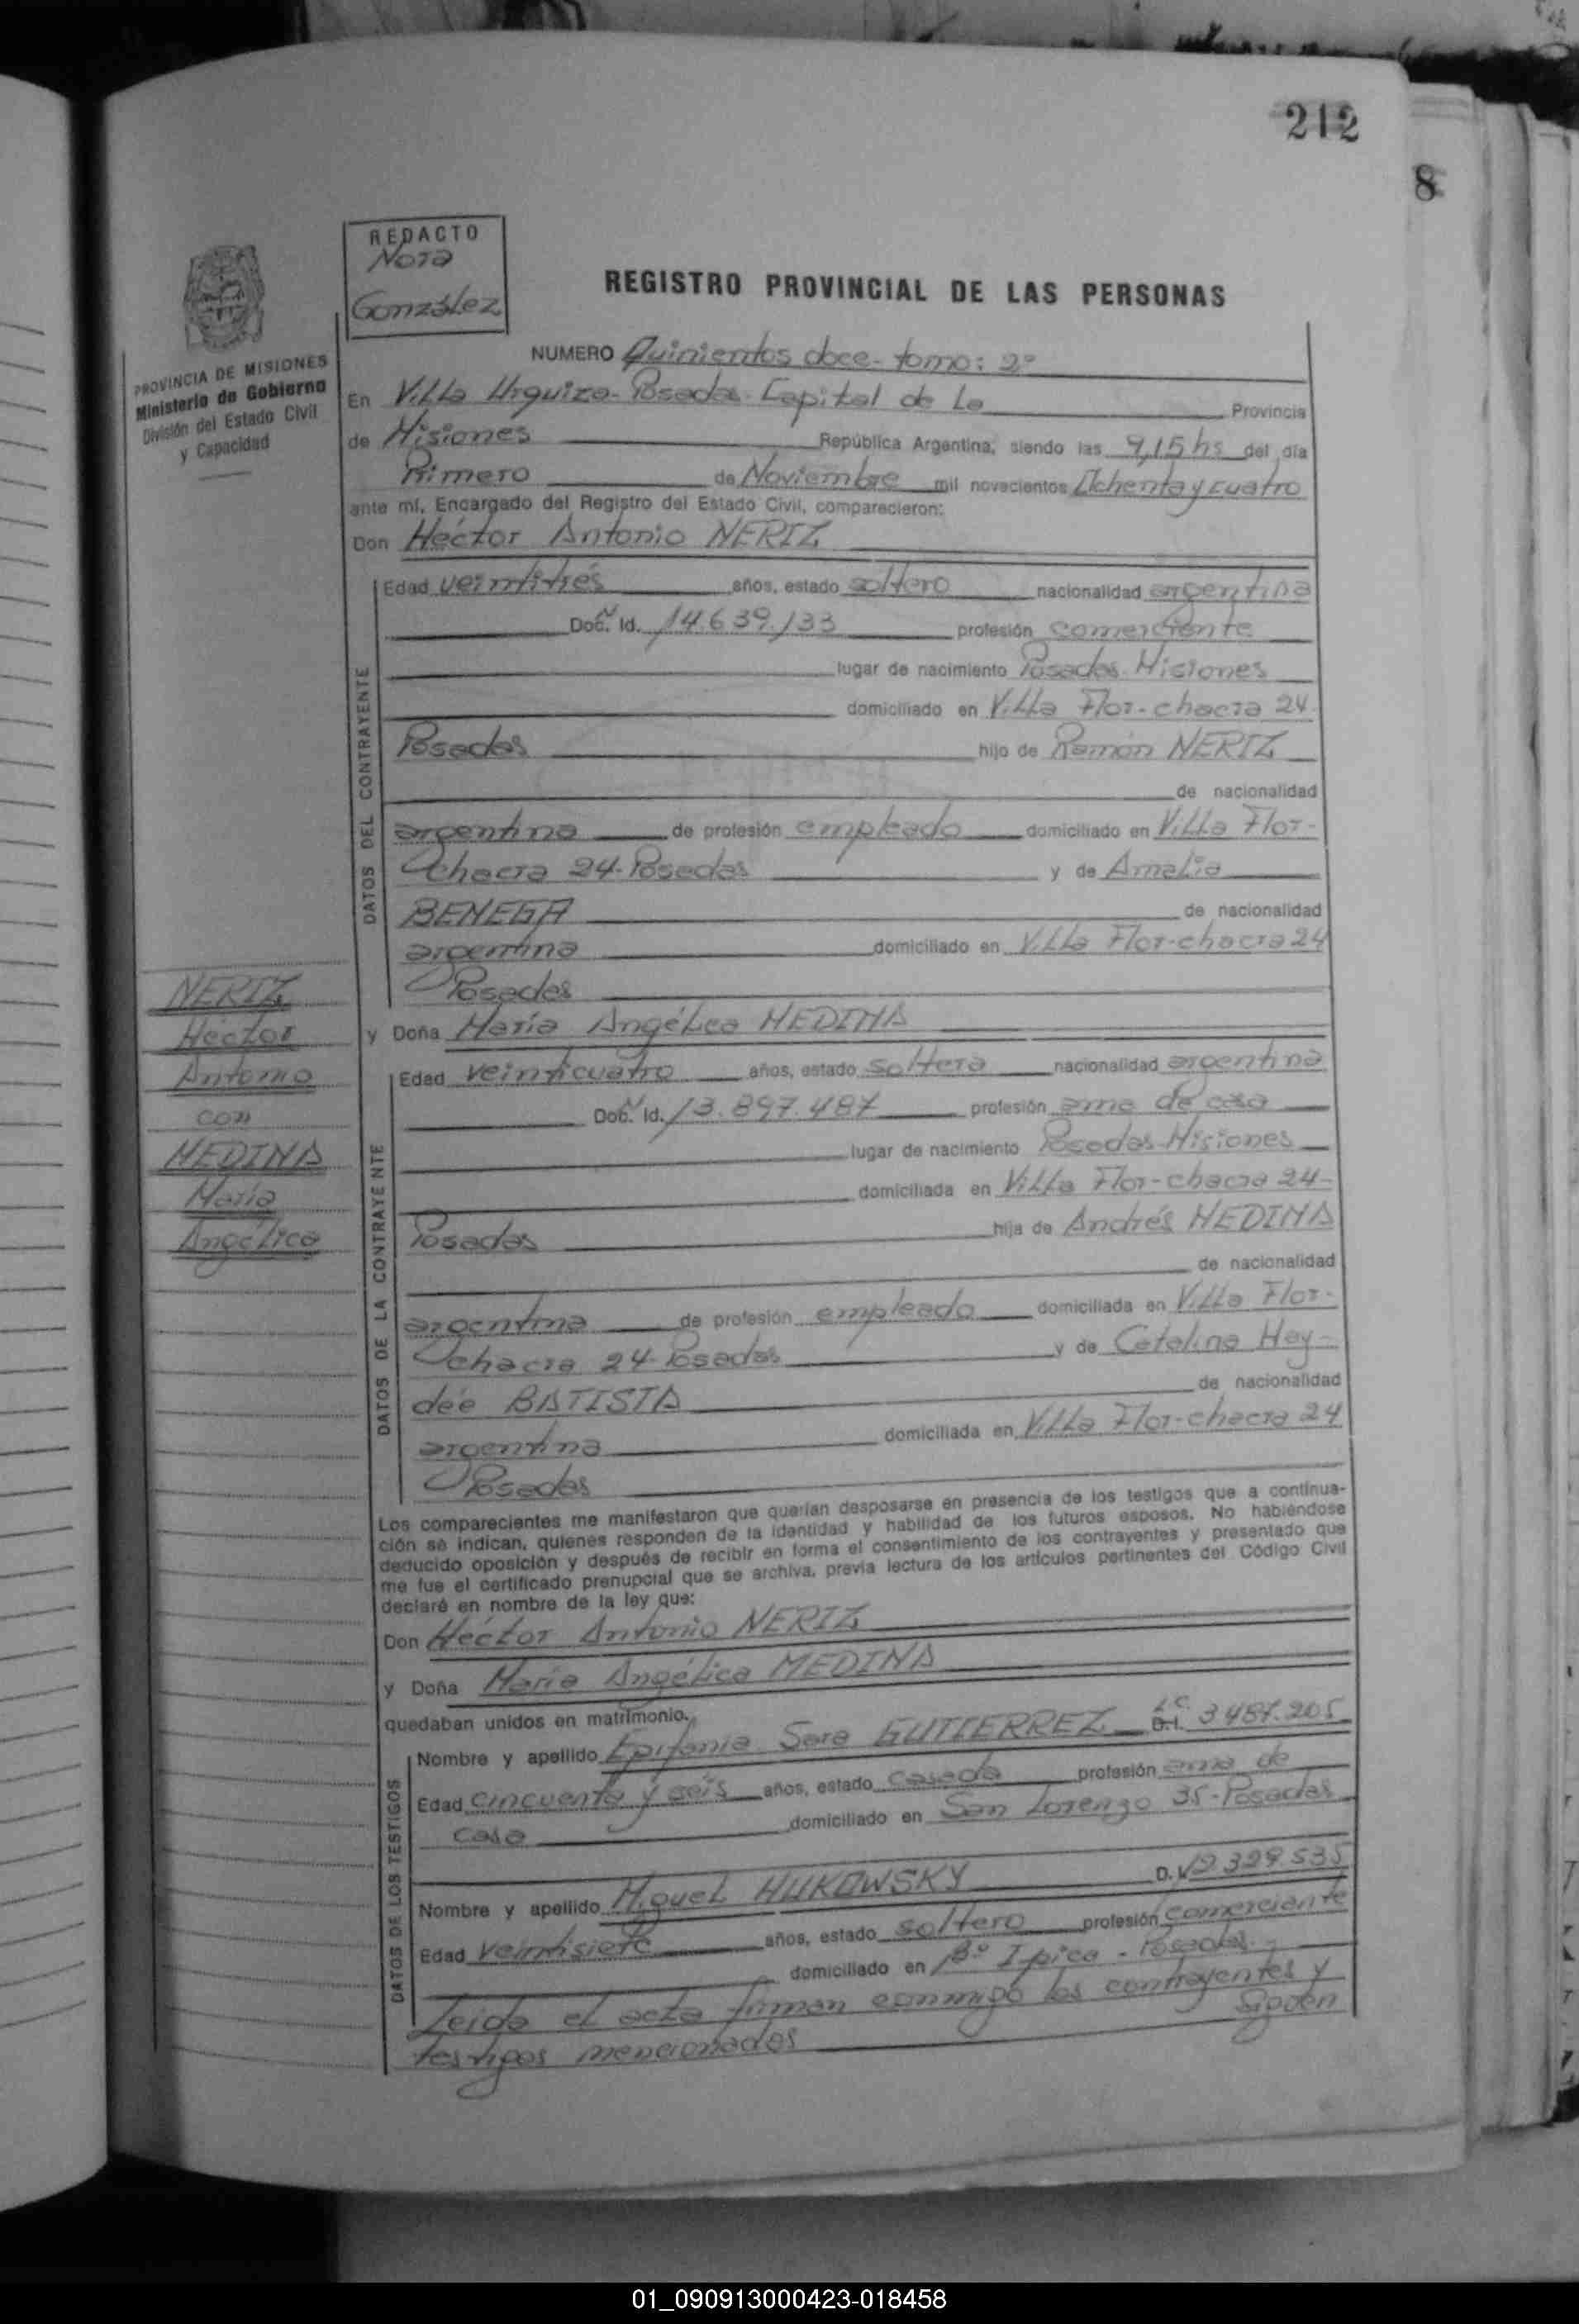 212
8
REDACTO
Nora
González
REGISTRO PROVINCIAL DE LAS PERSONAS
PROVINCIA DE MISIONES
Ministerio de Gobierno
División del Estado Civil
y Capacidad
NUMERO Quinientos doce- tomo: 2º
En Villa Urquiza- Posadas- Capital de La Provincia
de Misiones República Argentina, siendo las 9,15 hs del día
Primero de Noviembre mil novecientos Ochenta y cuatro
ante mí, Encargado del Registro del Estado Civil, comparecieron:
Don Héctor Antonio NERIZ
DATOS DEL CONTRAYENTE
Edad veintitrés años, estado soltero nacionalidad argentina
Doc. Id. 14.639.133 profesión comerciante
lugar de nacimiento Posadas-Misiones
domiciliado en Villa Flor-chacra 24-
Posadas hijo de Ramón NERIZ
de nacionalidad
argentina de profesión empleado domiciliado en Villa Flor-
chacra 24-Posadas y de Amalia
BENEGA de nacionalidad
argentina domiciliado en Villa Flor-chacra 24
Posadas
NERIZ
Héctor
Antonio
con
MEDINA
María
Angélica
y Doña María Angélica MEDINA
DATOS DE LA CONTRAYENTE
Edad veinticuatro años, estado soltera nacionalidad argentina
Doc. Id. 13.897.487 profesión ama de casa
lugar de nacimiento Posadas-Misiones
domiciliada en Villa Flor-chacra 24-
Posadas hija de Andrés MEDINA
de nacionalidad
argentina de profesión empleado domiciliada en Villa Flor-
chacra 24-Posadas y de Catalina Hay-
dée BATISTA de nacionalidad
argentina domiciliada en Villa Flor-chacra 24
Posadas
Los comparecientes me manifestaron que querían desposarse en presencia de los testigos que a continua-
ción se indican, quienes responden de la identidad y habilidad de los futuros esposos. No habiéndose
deducido oposición y después de recibir en forma el consentimiento de los contrayentes y presentado que
me fue el certificado prenupcial que se archiva, previa lectura de los artículos pertinentes del Código Civil
declaré en nombre de la ley que:
Don Héctor Antonio NERIZ
y Doña María Angélica MEDINA
quedaban unidos en matrimonio.
DATOS DE LOS TESTIGOS
Nombre y apellido Epifania Sara GUTIERREZ L.C. D.I. 3487.205
Edad cincuenta y seis años, estado casada profesión ama de
casa domiciliado en San Lorenzo 35-Posadas
Nombre y apellido Miguel HUKOWSKY D.I. 12.329.535
Edad veintisiete años, estado soltero profesión comerciante
domiciliado en Bº Ipica - Posadas.-
Leida el acta firman conmigo los contrayentes y
testigos mencionados Siguen
01_090913000423-018458